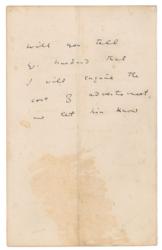 Will you tell
Mr. Hundred that
I will enquire the
cost of advertisement,
and let him know